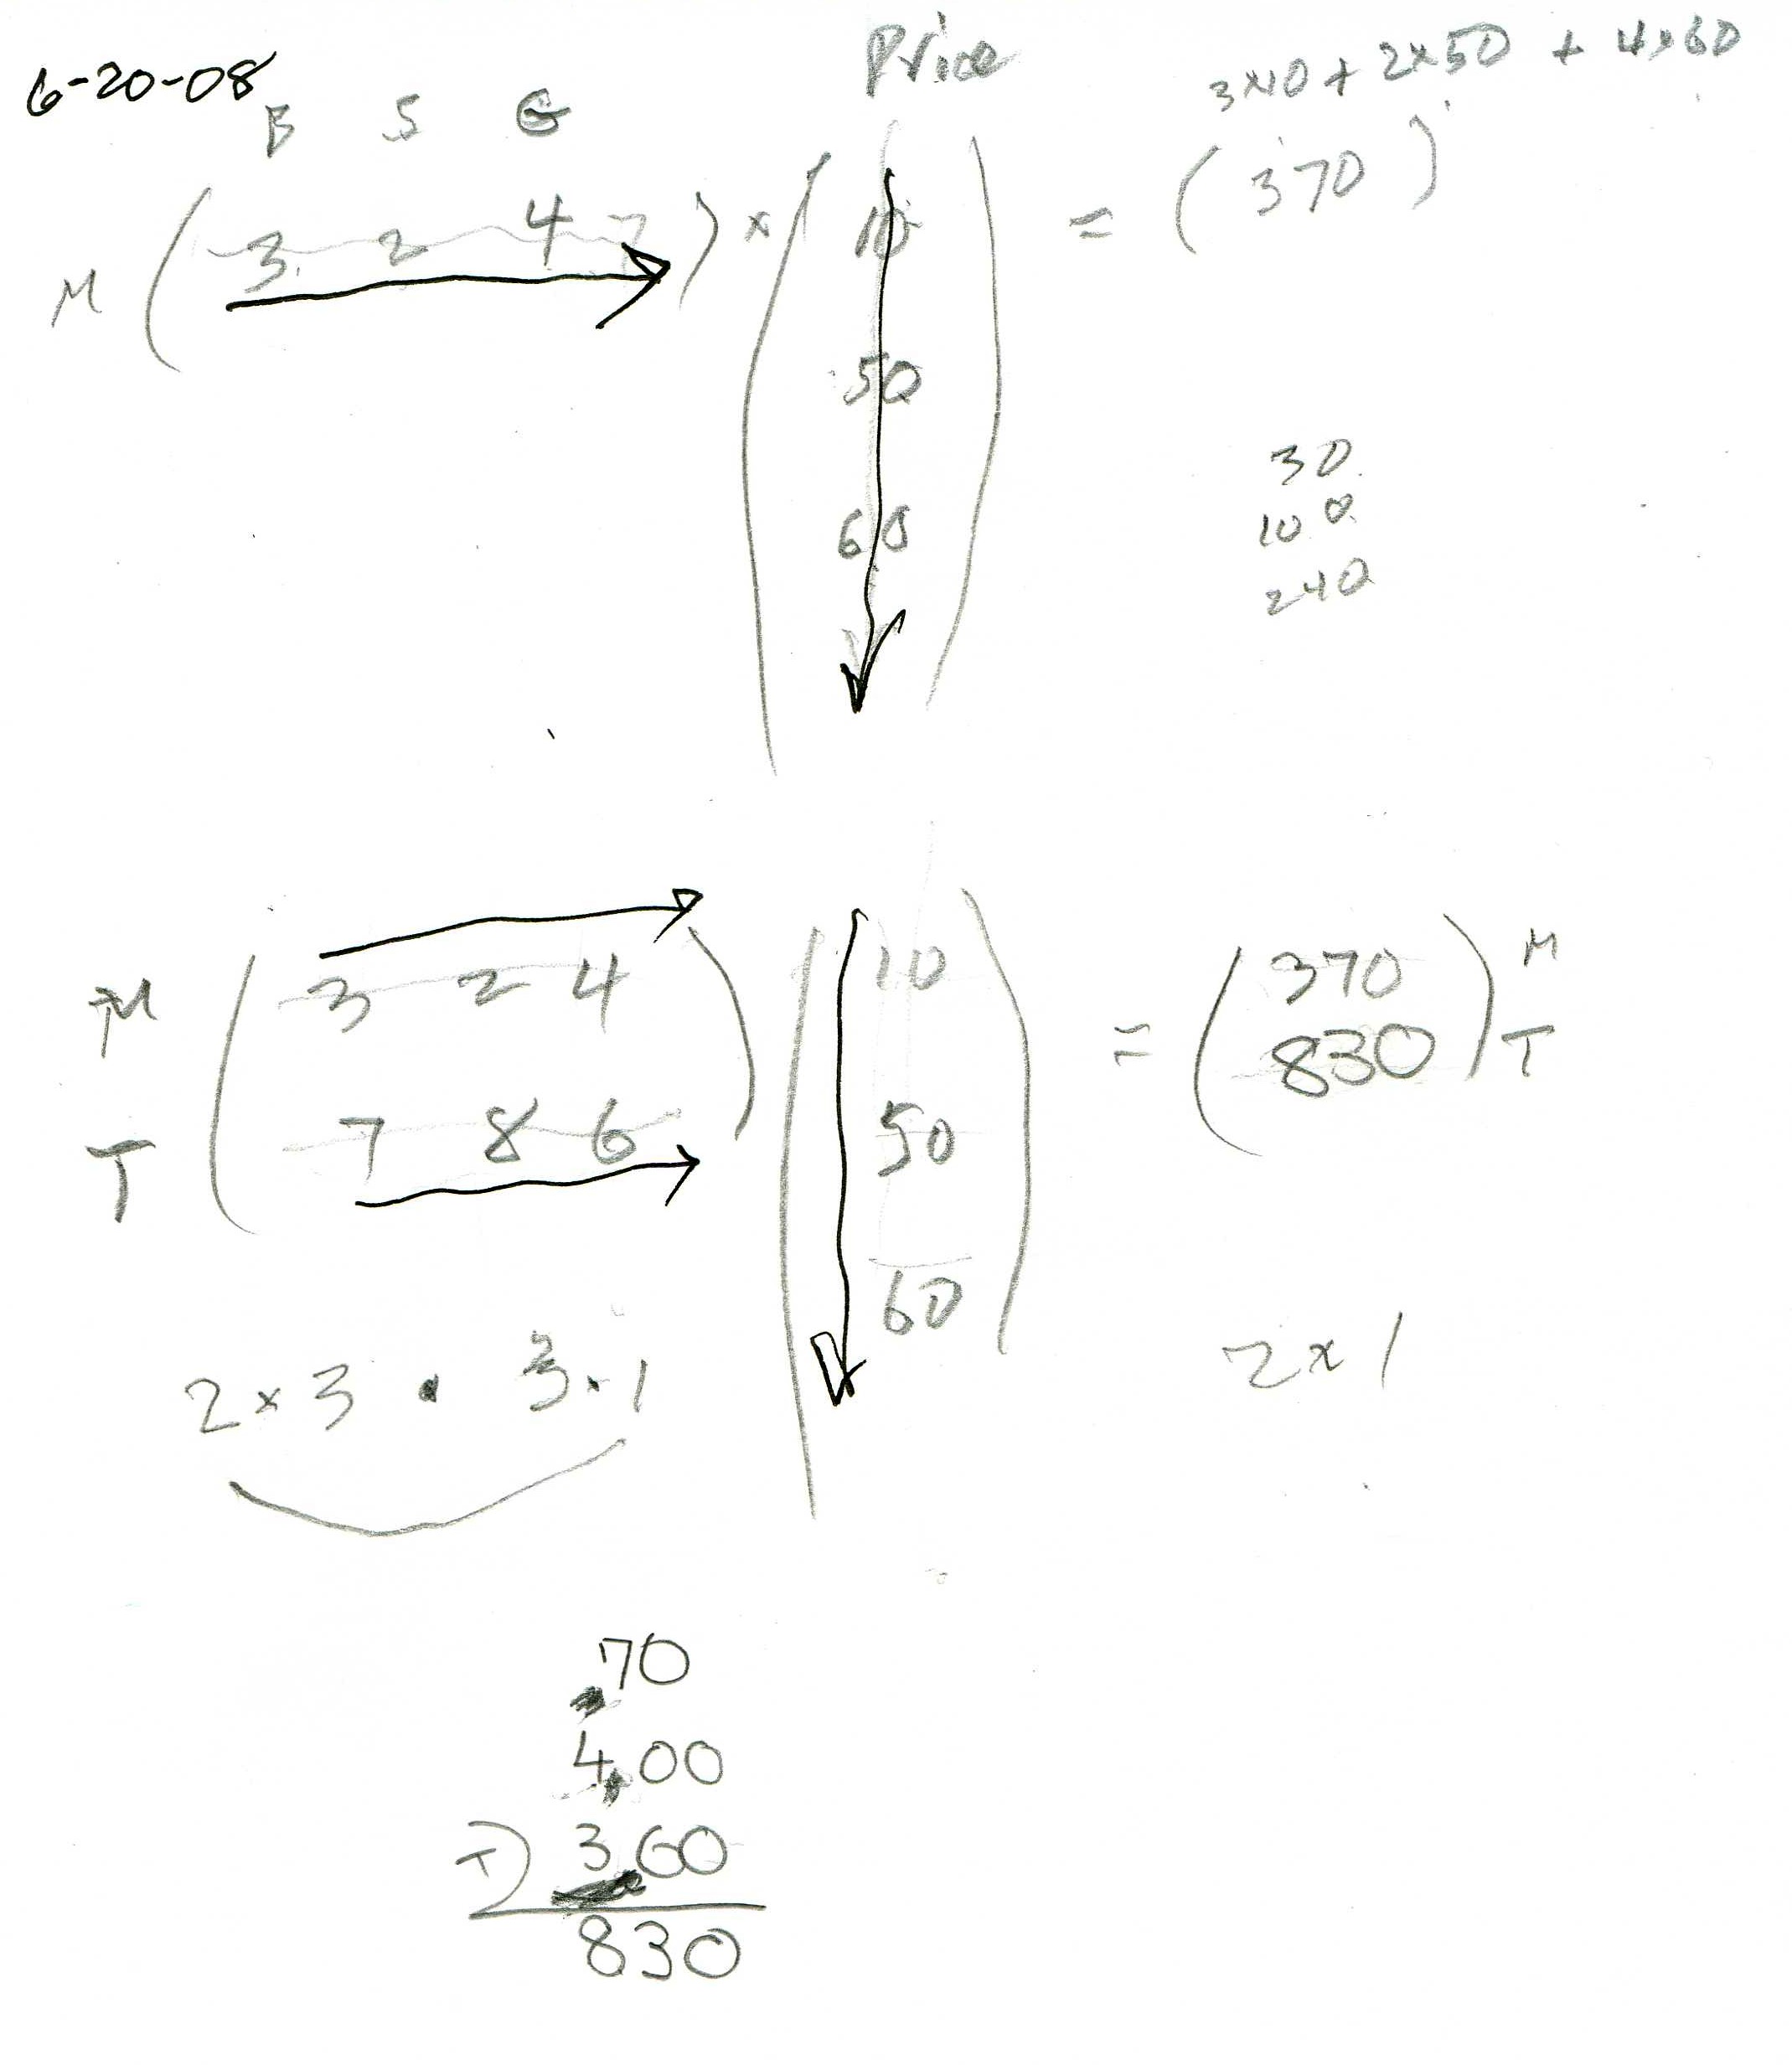 6-20-08
B S G
Price
3×10 + 2×50 + 4×60
M ( 3 2 4 ) × ( 10 50 60 ) = ( 370 )
30
100
240
M ( 3 2 4 ) ( 10 = ( 370 ) M
T ( 7 8 6 ) 50 830 ) T
60 )
2 × 3 · 3 · 1
2 × 1
70
4,00
+) 3,60
830